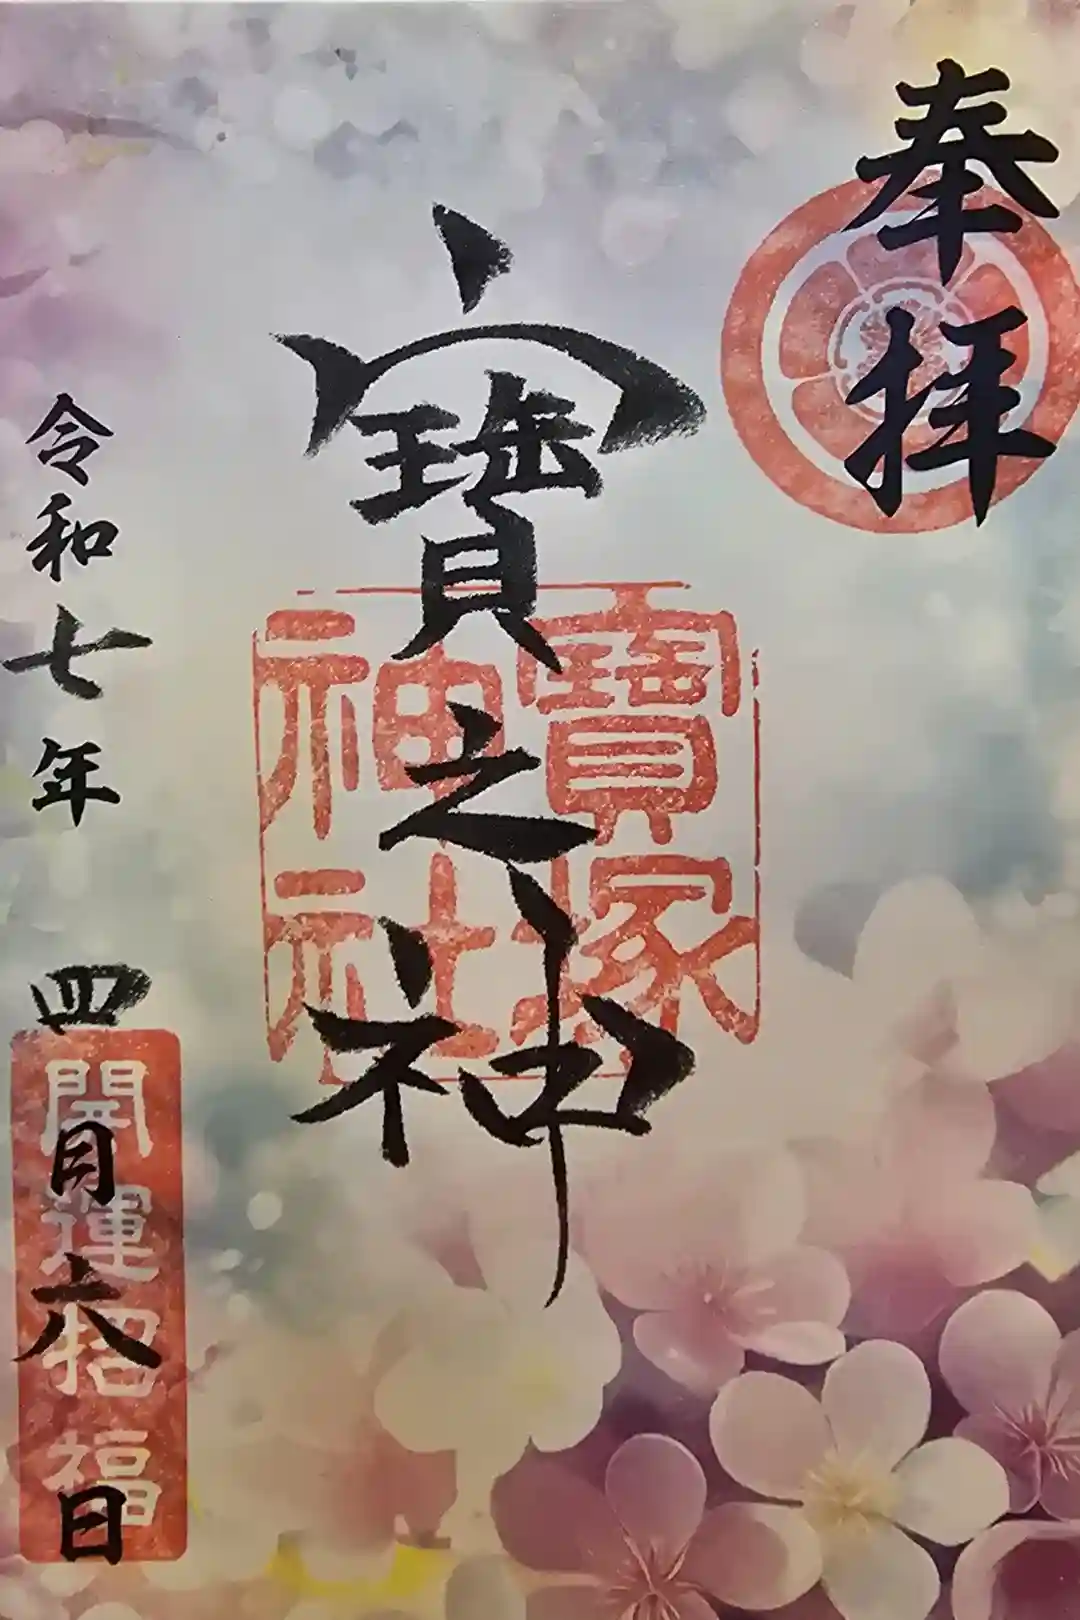 奉拝
寶之神
寶塚
神社
令和七年四月六日
開運招福